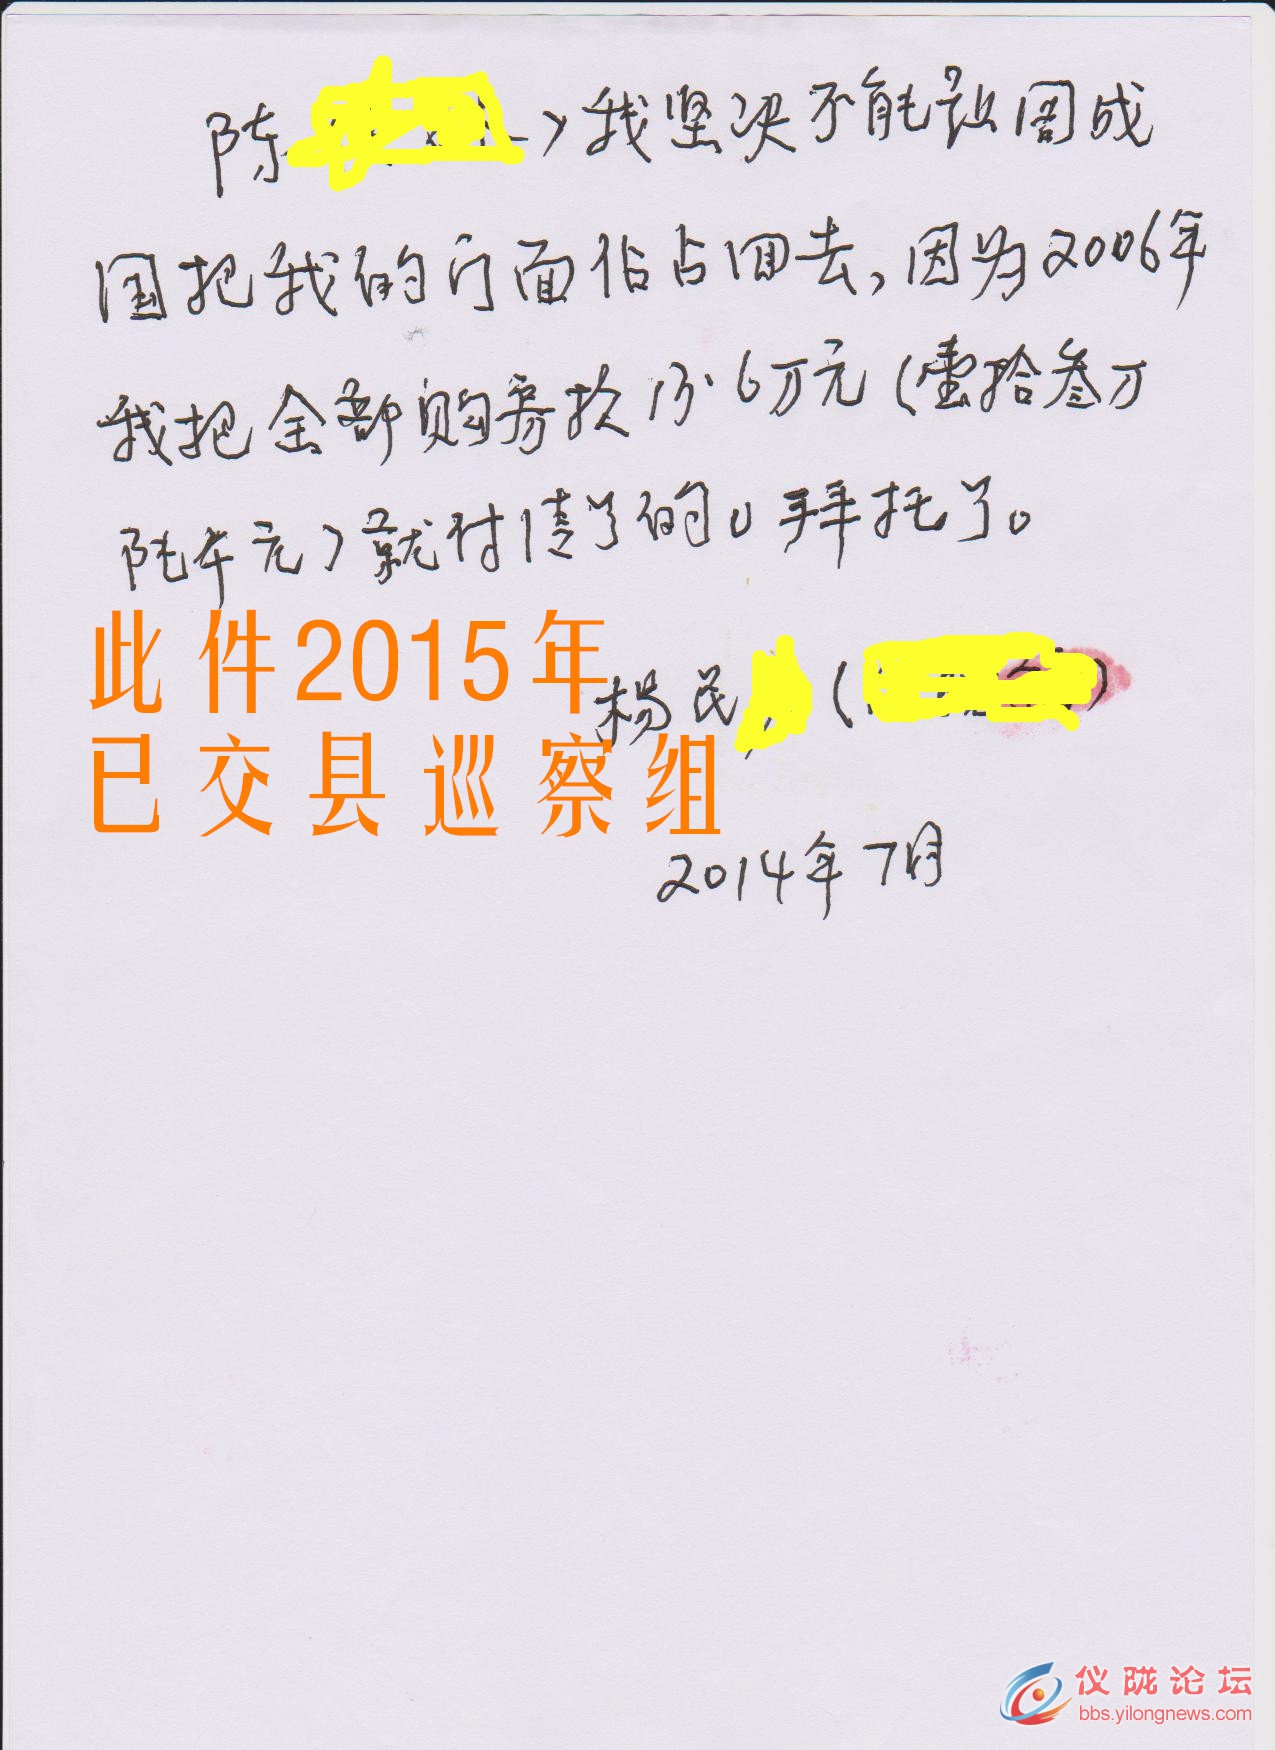 陈
我坚决不能设阁成
国把我的门面估占回去,因为2006年
我把全部购房款13.6万元(壹拾叁万
陆仟元)就付清了的。拜托了。
此件2015年
杨民 ( )
已交县巡察组
2014年7月
仪陇论坛
bbs.yilongnews.com